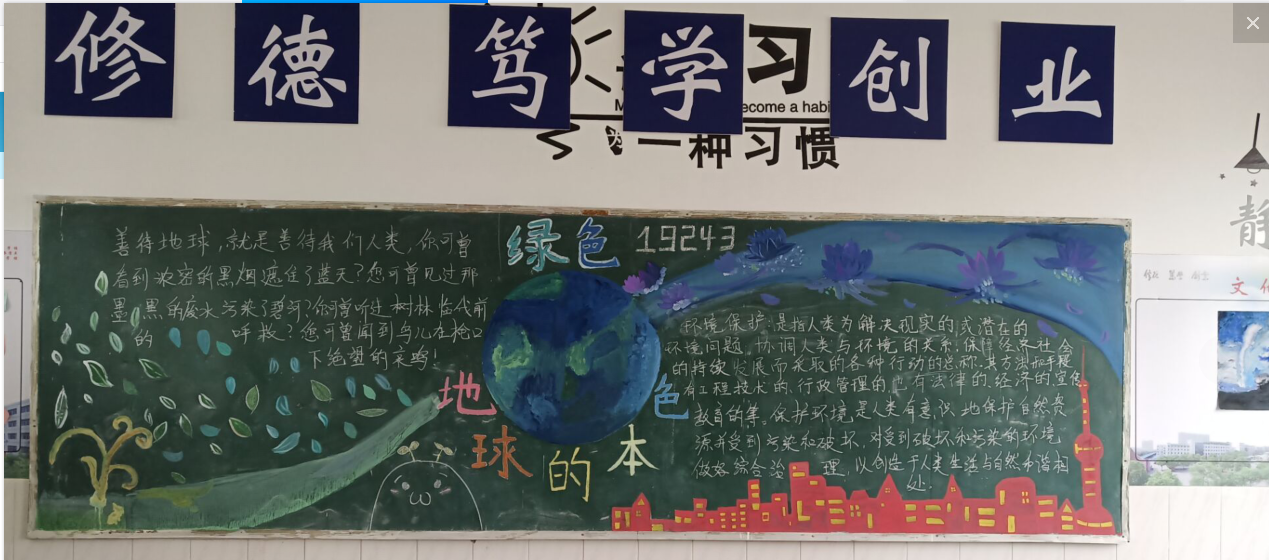 修德 笃学 创业
习
ecome a habi
一种习惯
静
绿色 19243
善待地球,就是善待我们人类,你可曾
看到浓密的黑烟遮住了蓝天?您可曾见过那
墨黑的废水污染了碧河?你可曾听过树林临代前
的 呼救?您可曾闻到鸟儿在枪口
下绝望的哀鸣!
地球的本色
环境保护:是指人类为解决现实的或潜在的
环境问题,协调人类与环境的关系,保障经济社会
的持续发展而采取的各种行动的总称。其方法和手段
有工程技术的、行政管理的,也有法律的、经济的、宣传
教育的等。保护环境是人类有意识地保护自然资
源并受到污染和破坏,对受到破坏和污染的环境
做好综合治 理,以创造于人类生活与自然和谐相
处。
修德 笃学 创业
文化